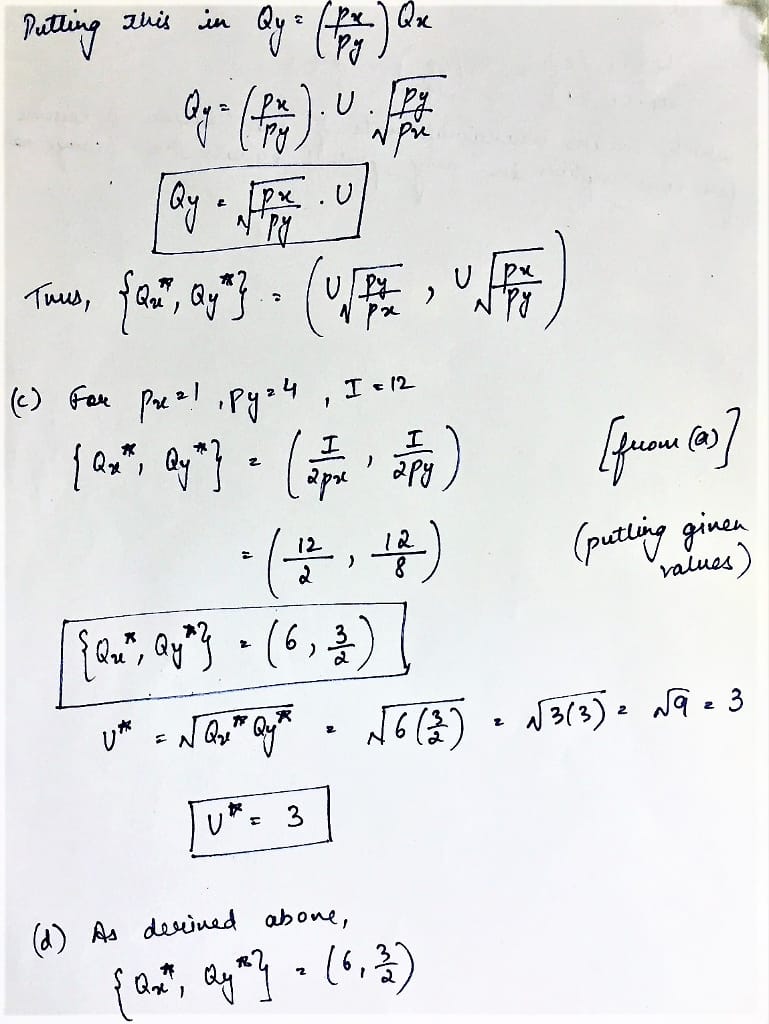 Putting this in Qy = (Px/Py) Qx
Qy = (Px/Py) . U . √(Py/Px)
Qy = √(Px/Py) . U
Thus, {Qx*, Qy*} = (U√(Py/Px) , U√(Px/Py))
(c) For Px = 1 , Py = 4 , I = 12
{Qx*, Qy*} = (I/2Px , I/2Py) [from (a)]
= (12/2 , 12/8) (putting given values)
{Qx*, Qy*} = (6, 3/2)
U* = √(Qx* Qy*) = √(6(3/2)) = √(3(3)) = √9 = 3
U* = 3
(d) As derived above,
{Qx*, Qy*} = (6, 3/2)